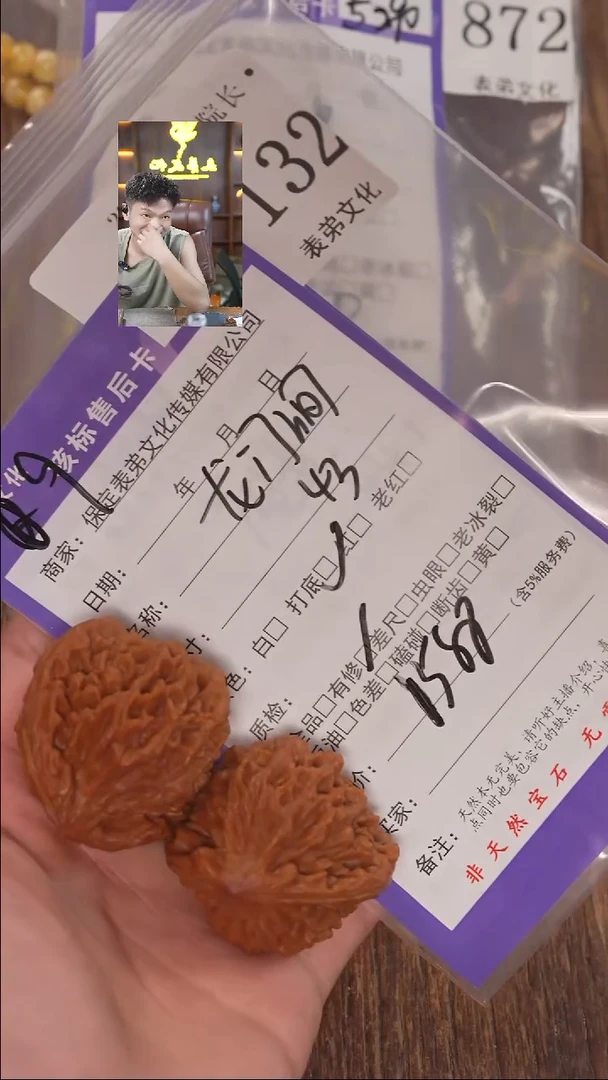 872
表弟文化
院长
132
表弟文化
核标售后卡
商家：保定表弟文化传媒有限公司
日期： 年 月 日
名称： 龙门涧
寸： 43
色：白□ 打底□ 红□ 老红□
质检：
全品□有修□差尺□虫眼□老冰裂□
油□色差□磕碰□断齿□黄□
价： 1580 （含5%服务费）
买家：
备注：
天然本无完美，请听好主播介绍，喜
点同时也要包容它的缺点，开心
非天然宝石 无